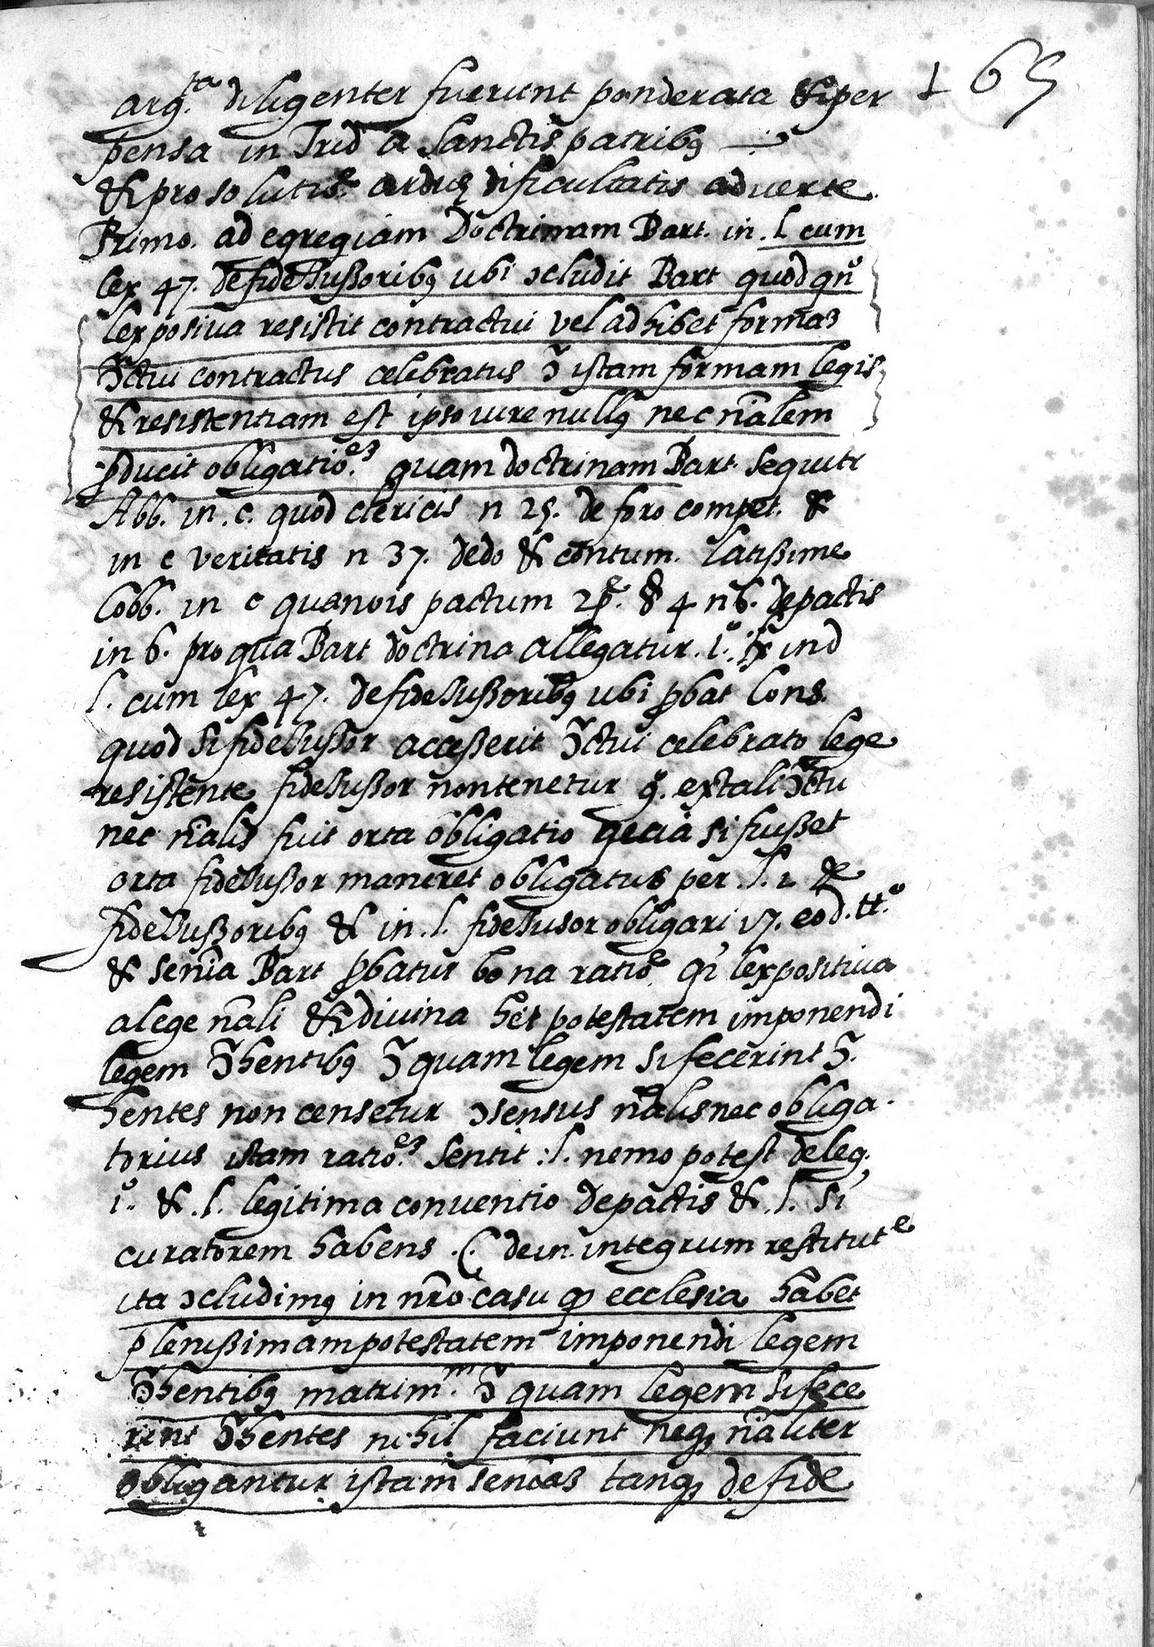 165
arg.ta diligenter fuerunt ponderata & per
pensa in Trid a Sanctis patribꝰ
& pro solutio.e arduę dificultatis adverte.
Primo. ad egregiam Doctrinam Bart. in. l cum
lex 47. de fideiussoribꝰ ubi ɔcludit Bart quod qn̄o
lex posiva resistit contractui vel adhibet formaʒ
ɔ̄ctui contractus celebratus ɔ̄ istam formam legis
& resistentiam est ipso iure nullꝰ nec nālem
ꝓducit obligatio.eʒ quam doctrinam Bart. sequitr
Abb. in. c. quod clericis n 25. de foro compet. &
in c veritatis n 37. de do & contum. latissime
Cobb. in c quanvis pactum 2 p.e § 4 n 6. de pactis
in 6. pro qua Bart doctrina allegatur. 1.o tex in d
l. cum lex 47. de fideiussoribꝰ ubi ꝓbat Cons.
quod si fideiussor accesserit ɔ̄ctui celebrato lege
resistente fideiussor non tenetur q. ex tali ɔ̄ctu
nec nālis fuit orta obligatio si fuisset
orta fideiussor maneret obligatus per .l. 1
fideiussoribꝰ & in .l. fideiusor obligari 17. eod. tt.o
& senīa Bart ꝓbatur bona ratio.e qī lex positiva
a lege nāli & divina het potestatem imponendi
legem ɔ̄hentibꝰ ɔ̄ quam legem si fecerint ɔ̄.
hentes non censetur ɔsensus nālis nec obliga-
torius istam ratio.eʒ Sentit .l. nemo potest de leg.
1.o & .l. legitima conventio de pactis & .l. si
curatorem habens .C. de in integrum restitut.e
ita ɔcludimꝰ in nr̄o casu qd ecclesia habet
plenissimam potestatem imponendi legem
ɔ̄hentibꝰ matrim.m ɔ̄ quam legem si fece
rint ɔ̄hentes nihil faciunt neqꝫ nāliter
obligantur istam senīaʒ tanqꝫ de fide